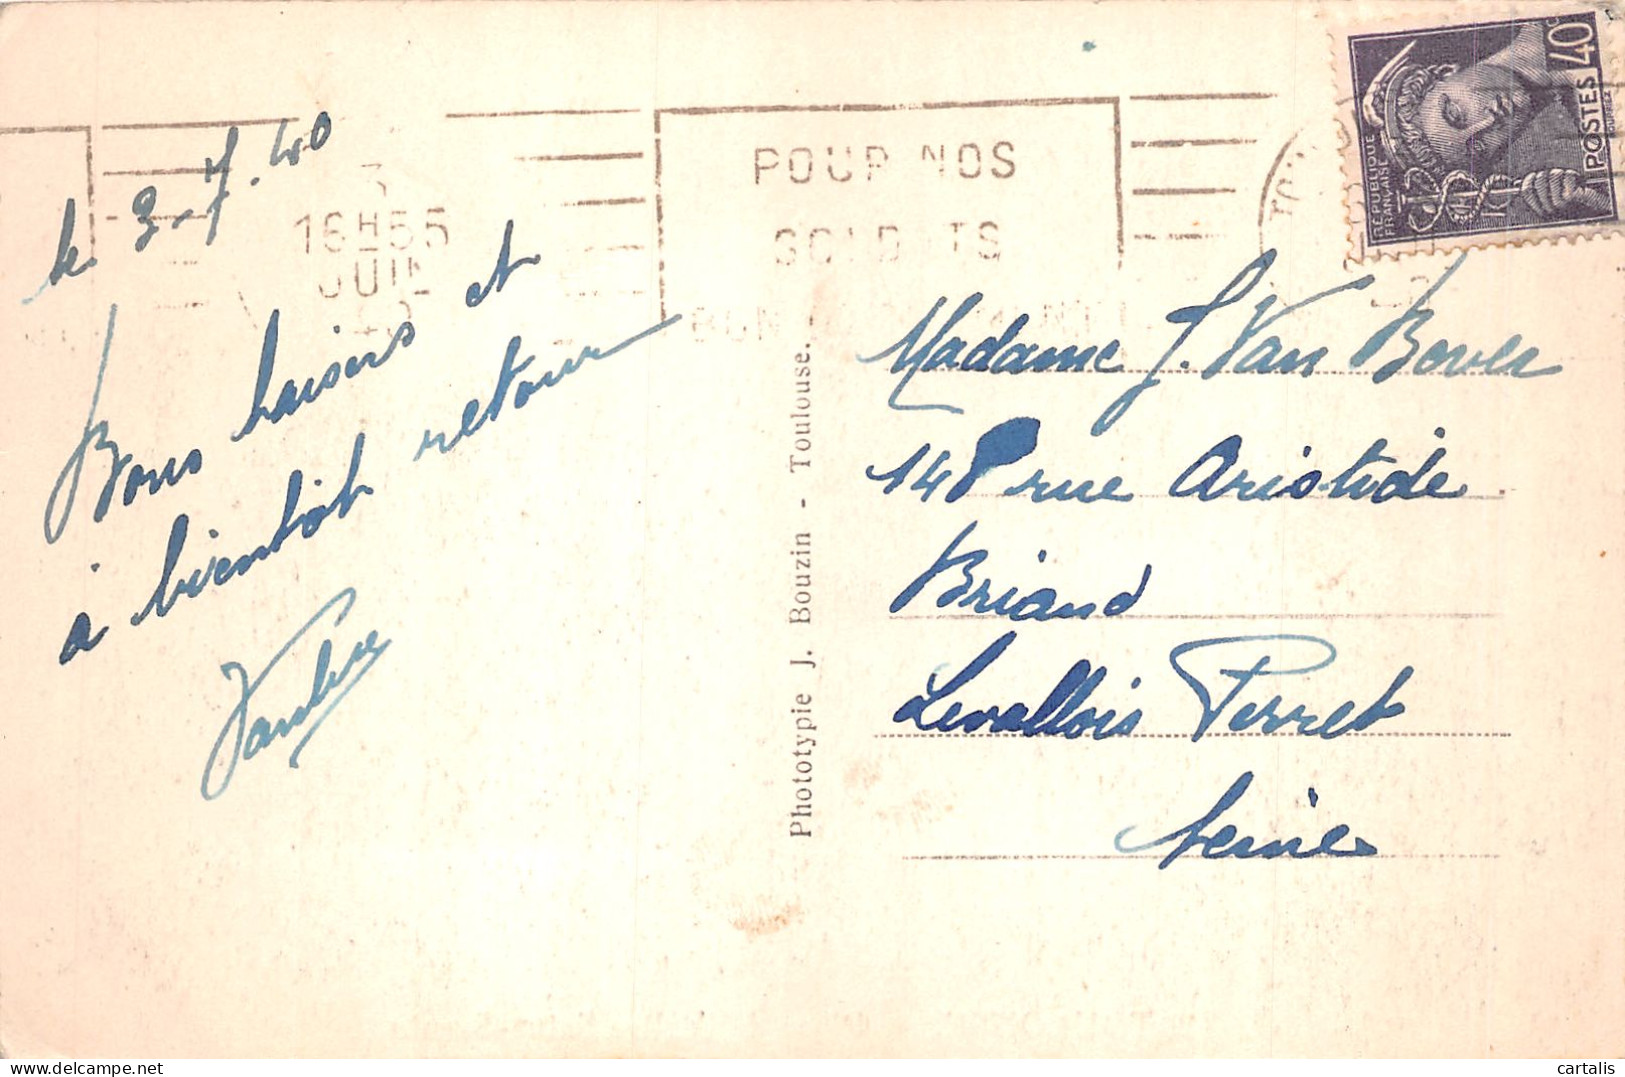 le 3-7-40
Bons baisers et
à bientôt retour
3
16H55
JUIL
POUR NOS
SOLDATS
RÉPUBLIQUE
FRANÇAISE
POSTES 40c
Phototypie J. Bouzin - Toulouse.
Madame J. Van Bover
148 rue Aristide
Briand
Levallois Perret
Seine
cartalis
delcampe.net